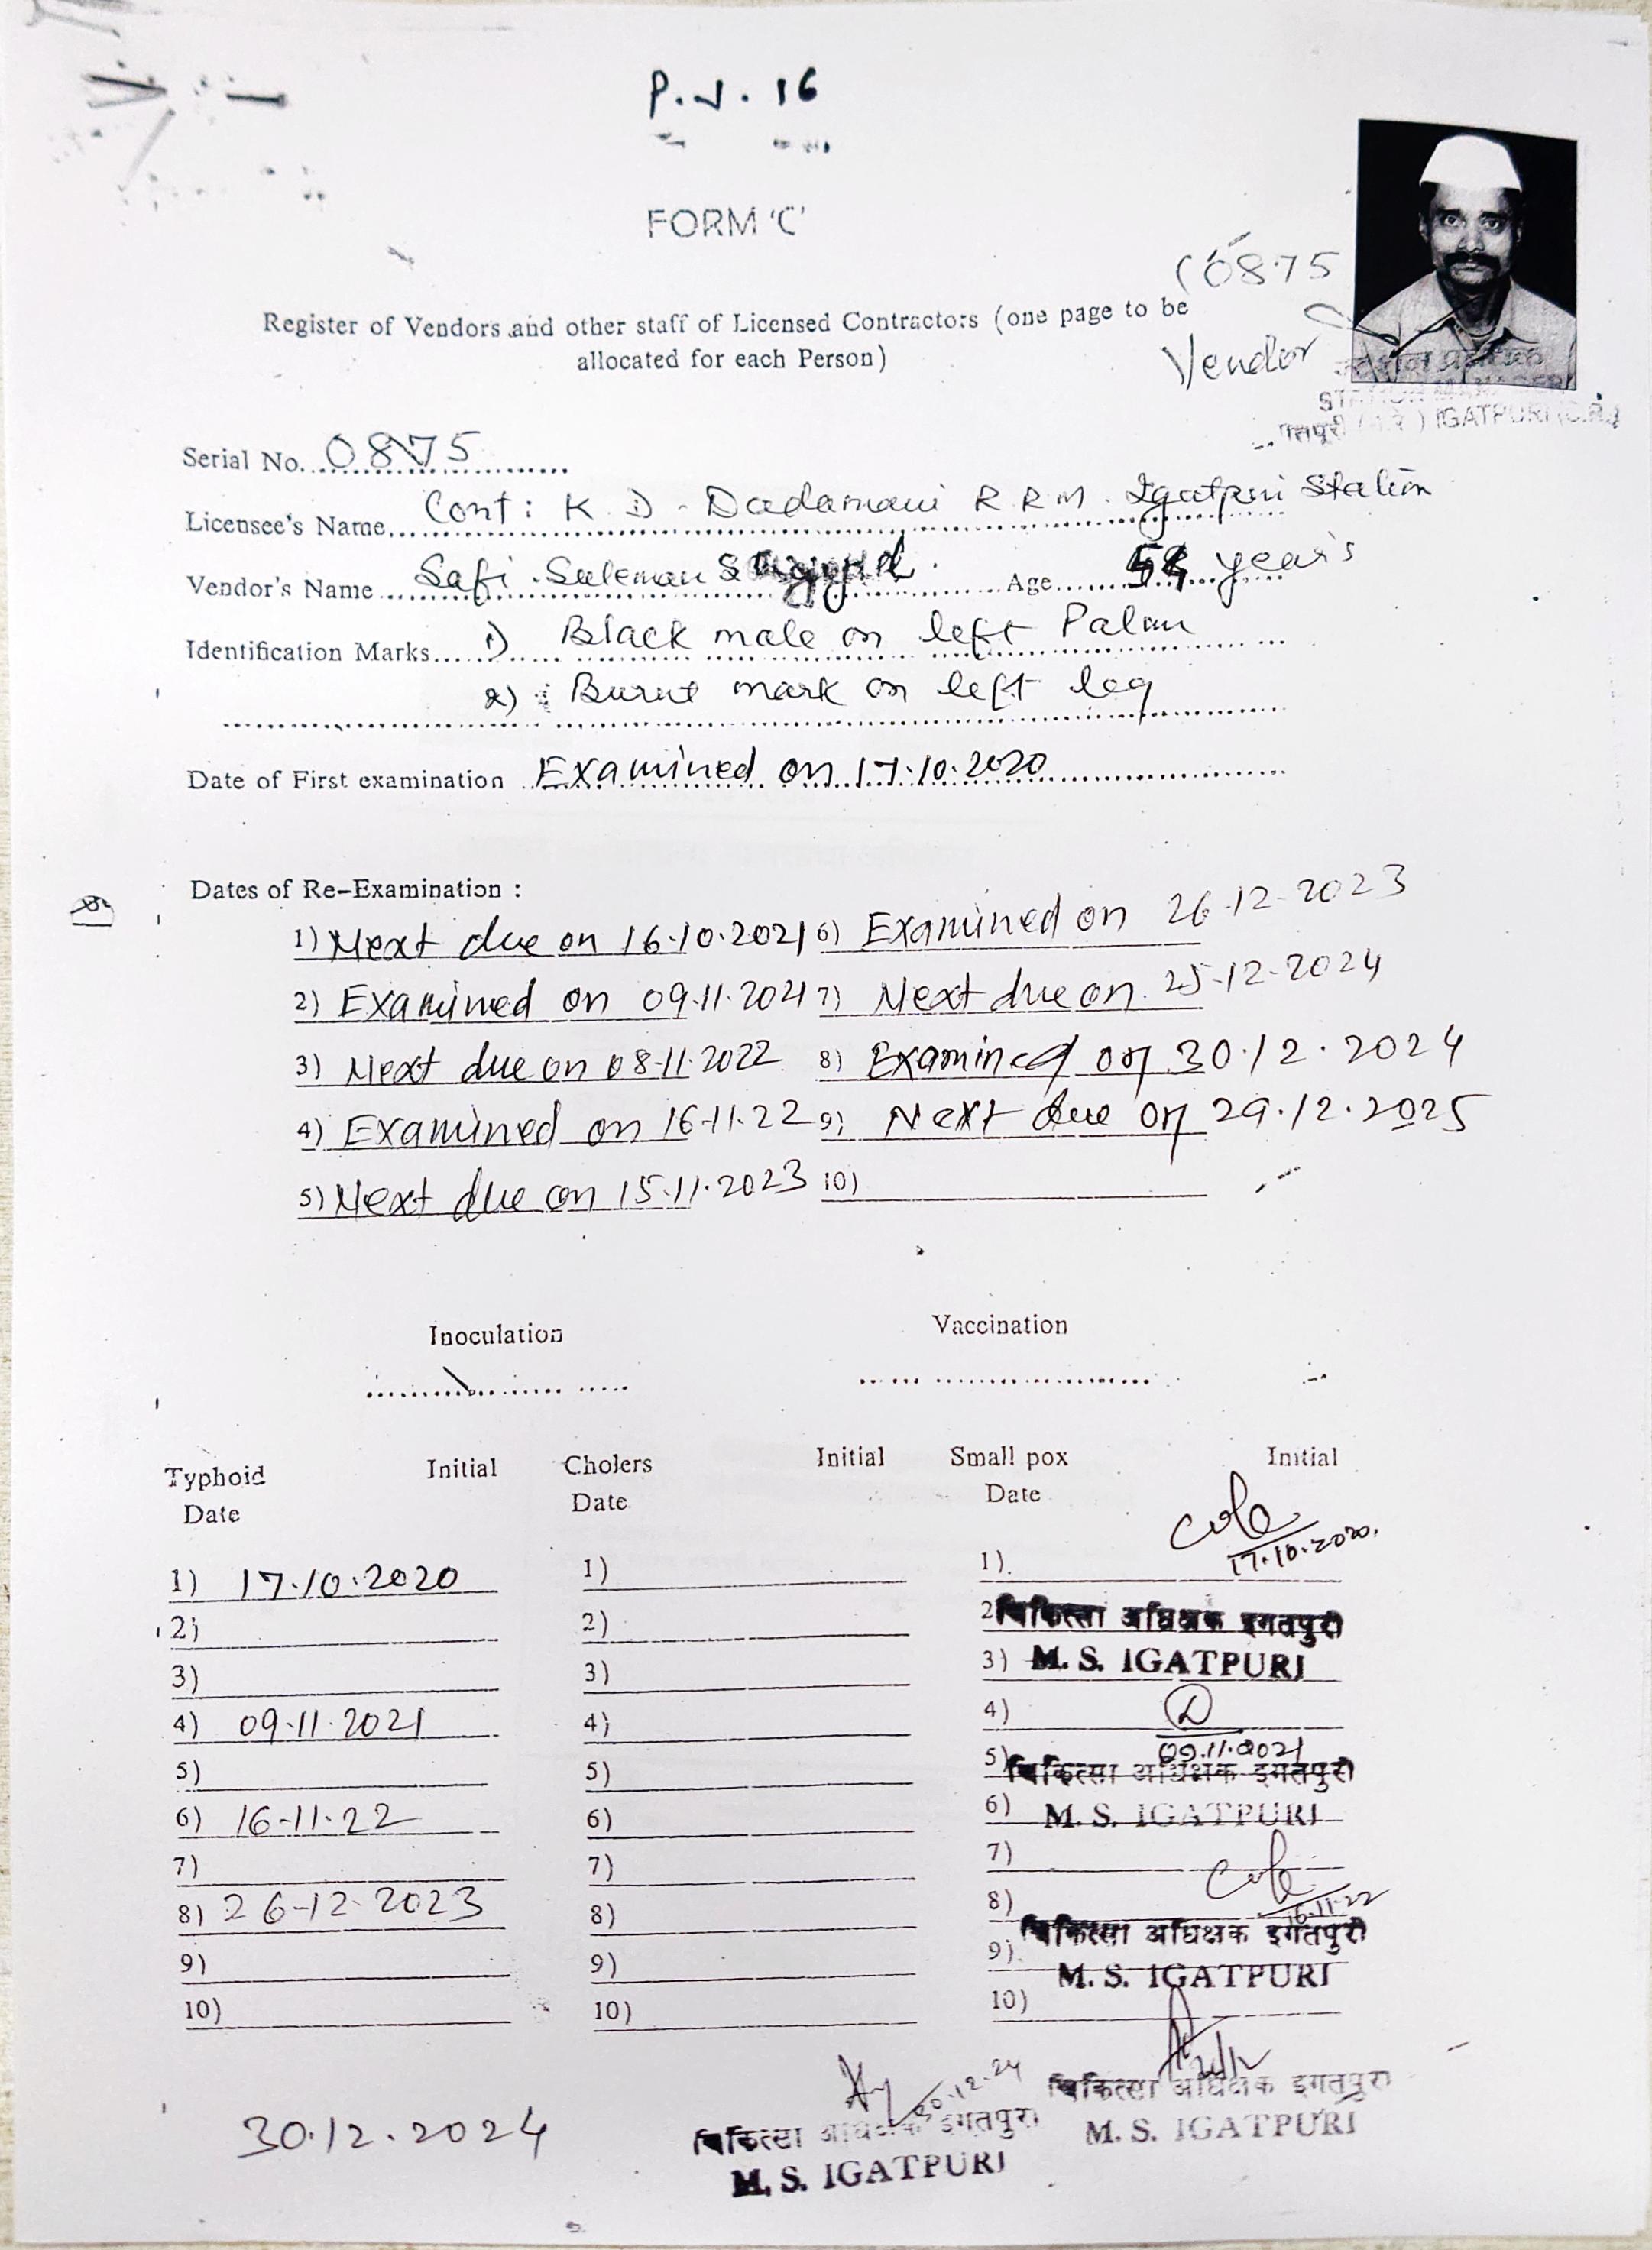 P.V. 16
FORM 'C'
(0875
Register of Vendors and other staff of Licensed Contractors (one page to be
allocated for each Person)
Vendor
STATION MANAGER
IGATPURI (C.R.)
Serial No. 0875
Licensee's Name Cont: K. D. Dadamani R R M. Igatpuri Station
Vendor's Name Safi Suleman Age years
Identification Marks 1) Black male on left Palm
2) Burnt mark on left leg
Date of First examination Examined on 17.10.2020
Dates of Re-Examination :
1) Next due on 16.10.2021 6) Examined on 26-12-2023
2) Examined on 09.11.2021 7) Next due on 25-12-2024
3) Next due on 08-11-2022 8) Examined on 30.12.2024
4) Examined on 16-11-22 9) Next due on 29.12.2025
5) Next due on 15.11.2023 10)
Inoculation Vaccination
Typhoid Initial Cholers Initial Small pox Initial
Date Date Date
17.10.2020.
1) 17.10.2020 1) 1)
2) 2) 2 चिकित्सा अधिक्षक इगतपुरी
3) 3) 3) M. S. IGATPURI
4) 09.11.2021 4) 4)
09.11.2021
5) 5) 5) चिकित्सा अधिक्षक इगतपुरी
6) 16-11-22 6) 6) M. S. IGATPURI
7) 7) 7)
8) 26-12-2023 8) 8) 16-11-22
चिकित्सा अधिक्षक इगतपुरी
9) 9) 9) M. S. IGATPURI
10) 10) 10)
30.12.24
चिकित्सा अधिक्षक इगतपुरी
30.12.2024 चिकित्सा अधिक्षक इगतपुरी M. S. IGATPURI
M. S. IGATPURI